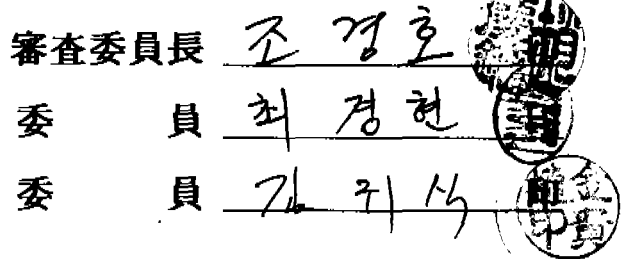 審査委員長 조경호
委 員 최경현
委 員 김귀식